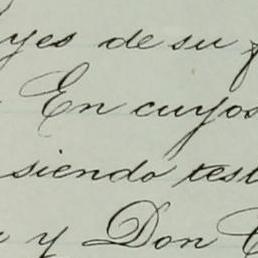 yes de su
En cuyos
siendo test
y Don